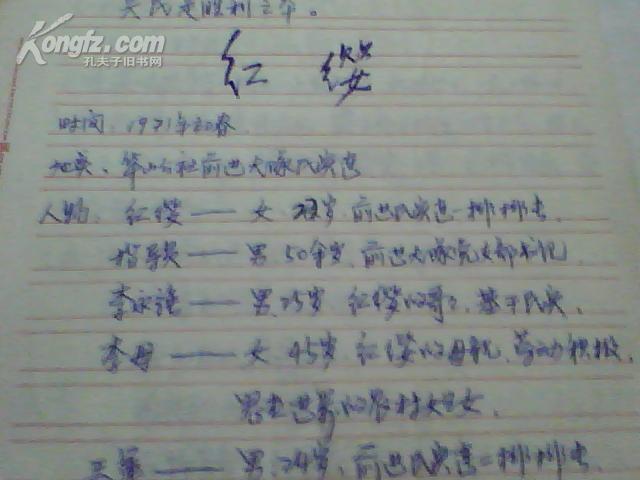 兵民是胜利之本。
Kongfz.com
孔夫子旧书网
红 缨
时间:1971年初春
地点:华山公社前进大队民兵营
人物:红缨——女 22岁 前进民兵营一排排长.
指导员——男 50余岁、前进大队党支部书记
李永——男、25岁 红缨的哥哥、基干民兵.
李母——女 45岁 红缨的母亲、劳动积极、
农村妇女.
——男、24岁、前进民兵营二排排长